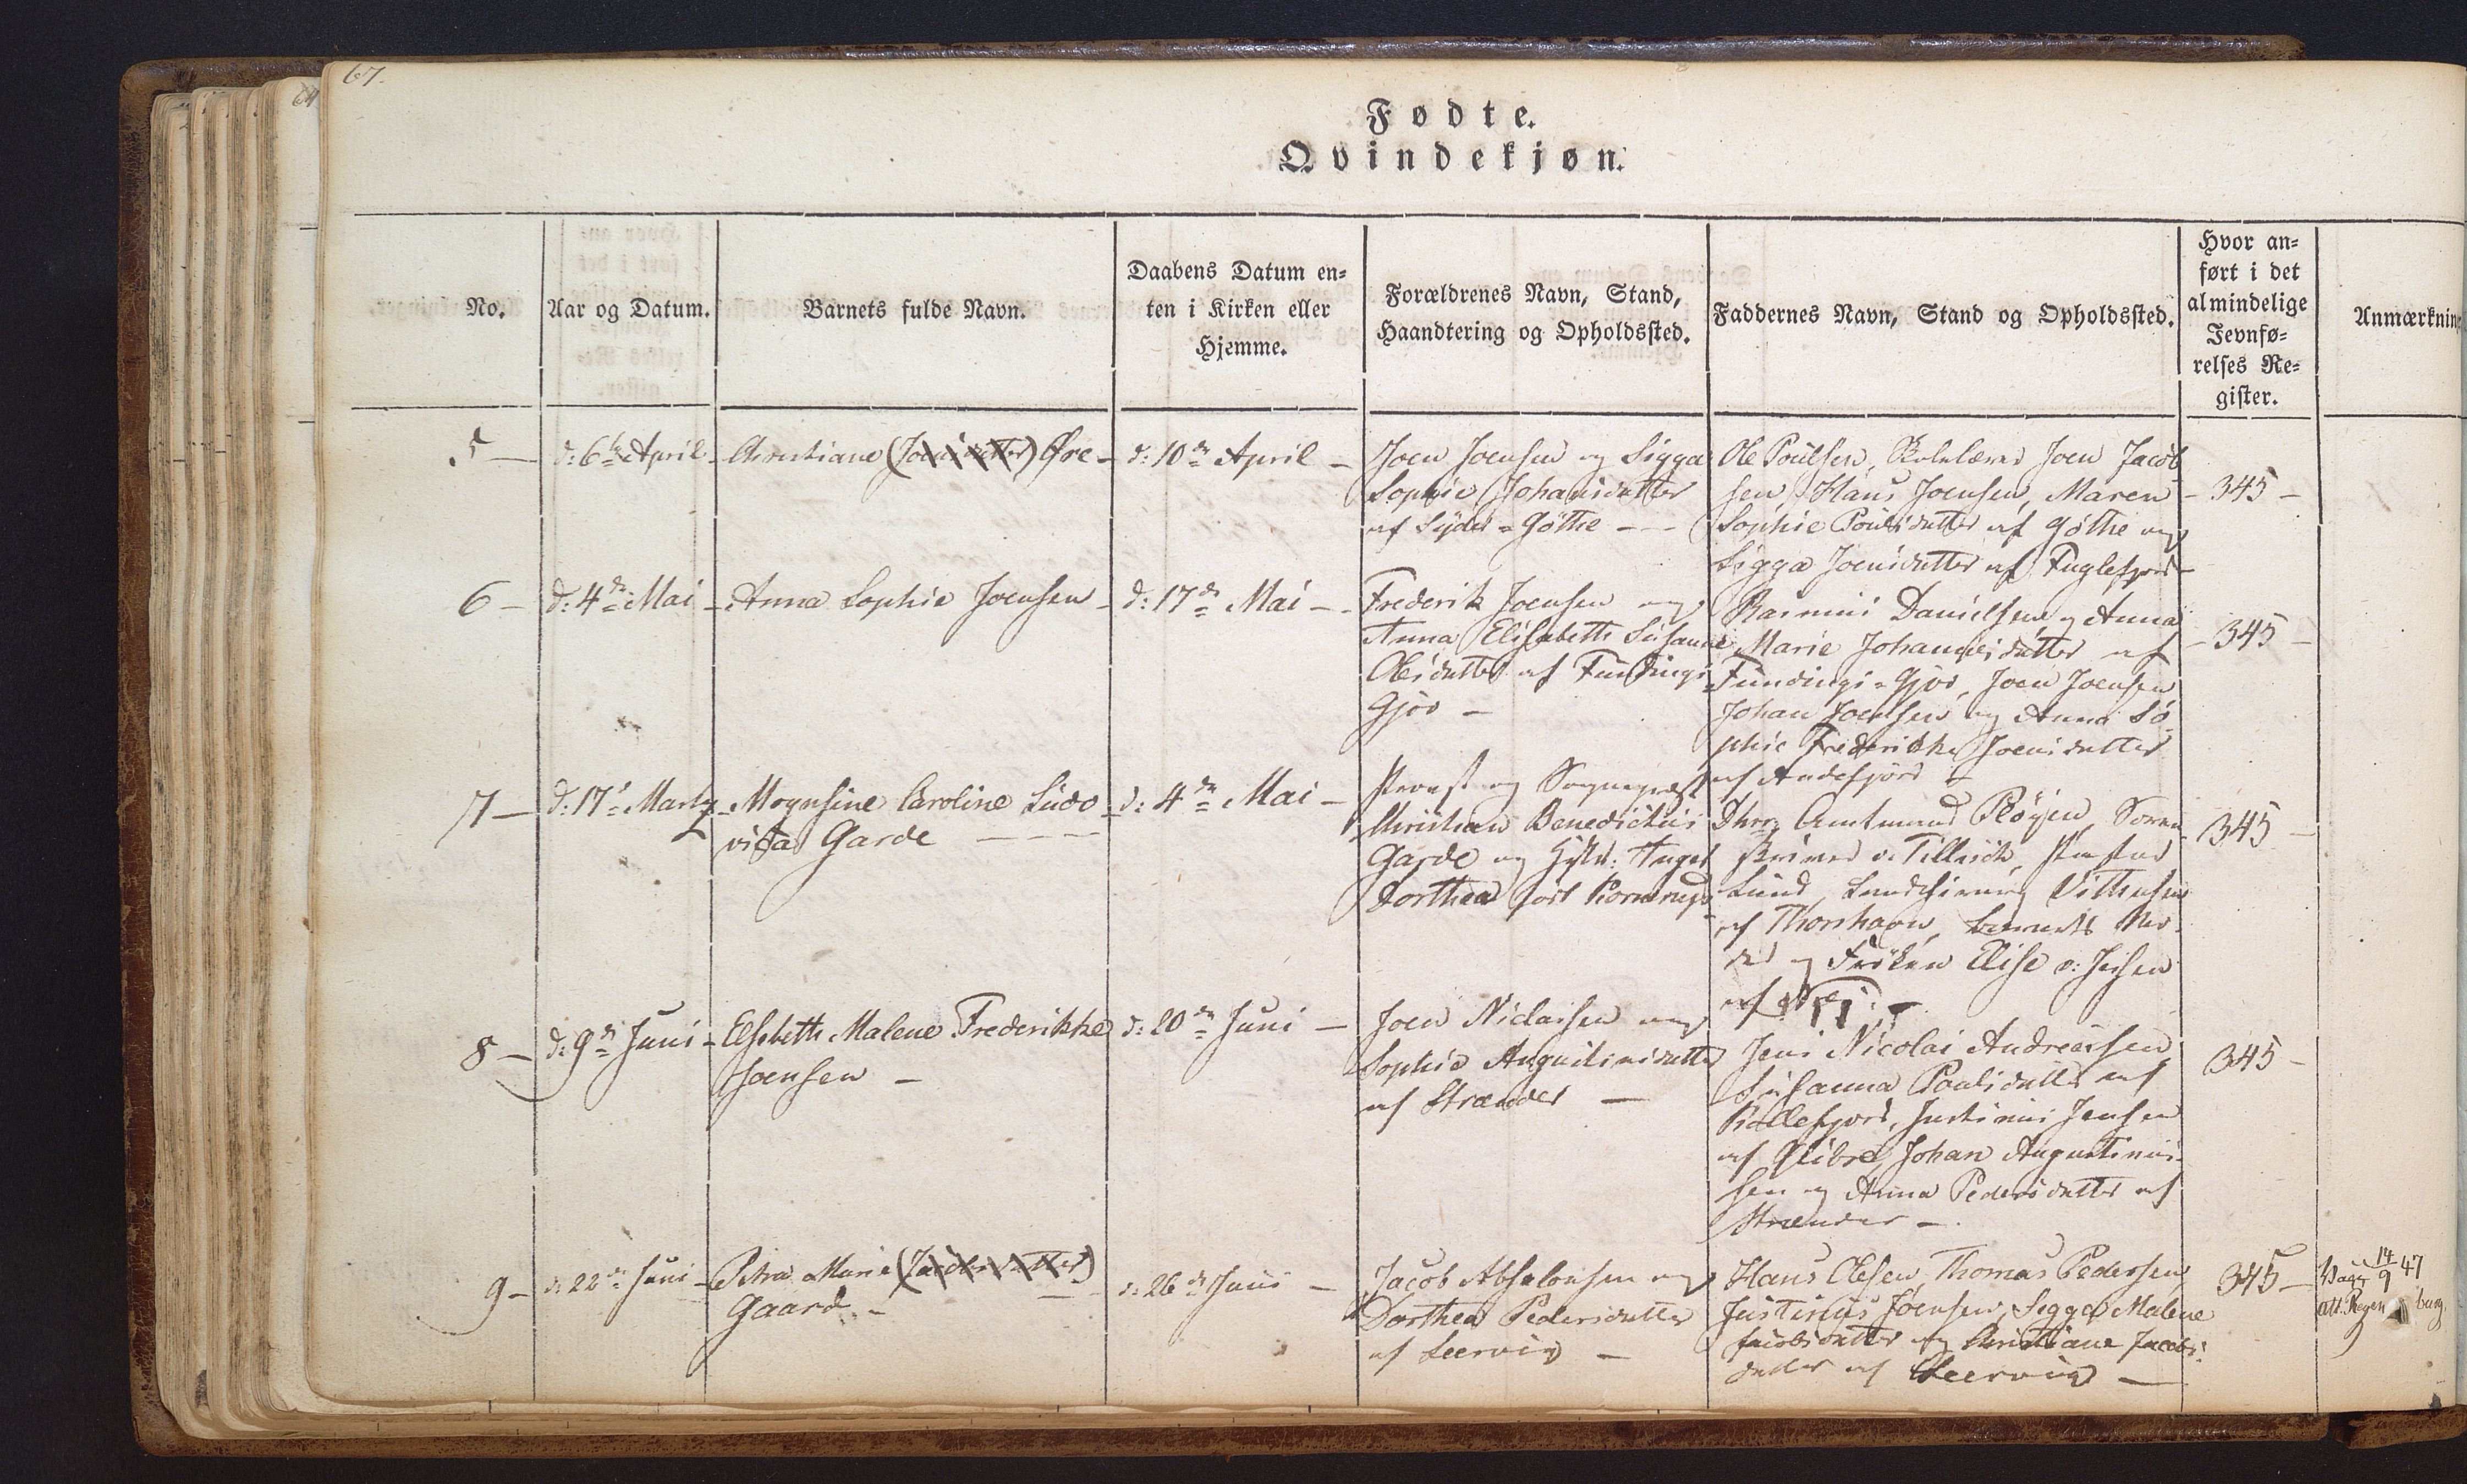 67.
64
Fødte.
Qvindekjøn.
No.
Aar og Datum.
Barnets fulde Navn.
Daabens Datum en-
ten i Kirken eller
Hjemme.
Forældrenes Navn, Stand,
Haandtering og Opholdssted.
Faddernes Navn, Stand og Opholdssted.
Hvor an-
ført i det
almindelige
Jevnfø-
relses Re-
gister.
Anmærkning
5 —
d: 6te April
Christiane (Joensdatter) Øre —
d: 10de April —
Joen Joensen og Sigga
Sophie Johannisdatter
af Syder-Gøthe — —
Ole Poulsen, Skolelærer Joen Jacob
sen, Hans Joensen, Maren
Sophie Poulsdatter af Gøthe og
Sigga Joensdatter af Fuglefjord
— 345 —
6 —
d: 4de Mai —
Anna Sophie Joensen —
d: 17de Mai —
Frederik Joensen og
Anna Elisabeth Susanne
Olesdatter af Fundings
Gjov —
Rasmus Danielsen og Anna
Marie Johannesdatter af
Fundings-Gjov, Joen Joensen
Johan Joensen og Anna So
phie Frederikke Joensdatter
af Andefjord —
— 345 —
7 —
d: 17de Marty
Mognsine Caroline Ludo
vica Garde — — —
d: 4de Mai —
Provst og Sognepræst
Christian Benedictus
Garde og Hustr:
Dorthea født Kornerup
Amtmand Pløyen, Soren
skriver v. Tillisch, Pastor
Lund, Landchirurg
af Thorshavn, barnets Mo
der og Frøken Elise v:
af
345 —
8 —
d: 9de Juni —
Elsebeth Malene Frederikke
Joensen —
d: 20de Juni —
Joen Niclassen og
Sophie Augustinusdatter
af Strænder —
Jens Nicolai Andreassen
Susanna Poulsdatter af
Kollefjord, Justinus Jensen
af Glibre, Johan Augustinus-
sen og Anna Pedersdatter af
Strænder —
345 —
9 —
d: 22de Juni —
Petra Marie (Jacobsdatter)
Gaard —
d: 26de Juni —
Jacob Absalonsen og
Dorthea Pedersdatter
af Leervig —
Hans Olesen, Thomas Pedersen
Justinus Joensen, Sigga Malene
Jacobsdatter og Christiane Jacobs
datter af Leervig —
345 —
14/9 47